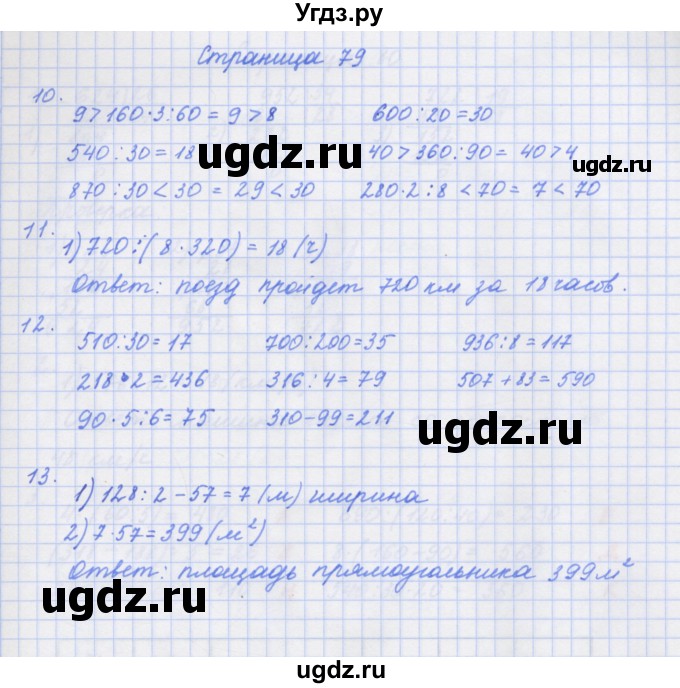 Угдз.ру
Страница 79
10.
9>160·3:60 = 9>8 600:20=30
540:30=18 40>360:90= 40>4
870:30<30 = 29<30 280·2:8 <70= 7<70
11.
1) 720:(8·320) = 18 (ч)
Ответ: поезд пройдет 720 км за 18 часов.
12.
510:30=17 700:200=35 936:8=117
218·2=436 316:4=79 507+83=590
90·5:6=75 310-99=211
13.
1) 128:2-57=7 (м) ширина
2) 7·57=399 (м²)
Ответ: площадь прямоугольника 399м²
ugdz.ru
ugdz.ru
ugdz.ru
ugdz.ru
ugdz.ru
ugdz.ru